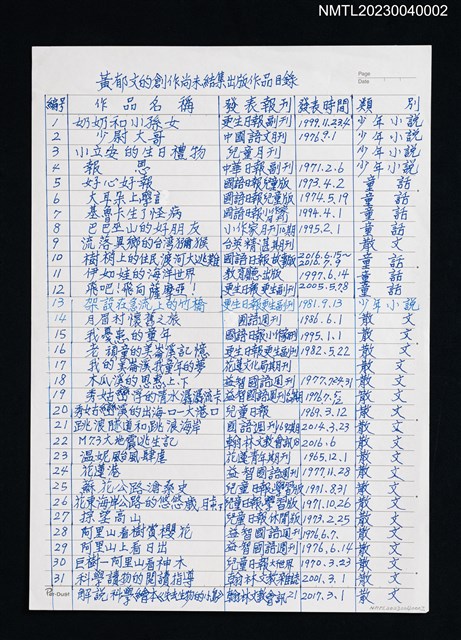 NMTL20230040002
黃郁文的創作尚未結集出版作品目錄
Page
Date
編号 作品名稱 發表報刊 發表時間 類別
1 奶奶和小孫女 更生日報副刊 1999.11.23.4 少年小説
2 少尉大哥 中國語文月刊 1976.9.1 少年小説
3 小立安的生日禮物 兒童月刊 少年小説
4 報恩 中華日報副刊 1971.2.6 少年小説
5 好心好報 國語日報兒童版 1973.4.2 童話
6 大耳朵上學 國語日報兒童版 1974.5.19 童話
7 基魯卡生了怪病 國語日報 1994.4.1 童話
8 巴巴巫山的好朋友 小作家月刊 1995.2.1 童話
9 流落異鄉的台湾獼猴 台英精萬期刊 散文
10 樹樹上的住民渡河大逃難 國語日報故事版 2016.6.15~ 2016.7.9 童話
11 伊如娃的海洋世界 教育廳出版 1997.6.14 童話
12 飛吧！飛向薩摩亞！ 更生日報更生副刊 2005.5.7.8 童話
13 架設在急流上的竹橋 更生日報更生副刊 1981.9.13 少年小説
14 月眉村懷舊之旅 國語週刊 1986.6.1 散文
15 我憂患的童年 國語日報 1995.1.1 散文
16 老頑童的美崙溪記憶 更生日報更生副刊 1982.5.22 散文
17 我的美崙溪我童年的夢 花蓮文化局期刊 散文
18 木瓜溪的恩怨上、下 益智國語週刊 散文
19 秀姑巒 益智國語週刊 散文
20 秀姑巒溪的出海口—大港口 兒童日報 1969.3.12 散文
21 跳浪隧道和跳浪海岸 國語週刊 2014.3.23 散文
22 M73大地震逃生記 翰林文教會訊 2016.6 散文
23 溫妮颱風肆虐 花蓮青年期刊 1965.12.1 散文
24 花蓮港 益智國語週刊 1977.11.28 散文
25 蘇花公路滄桑史 兒童日報學習版 1971.8.31 散文
26 花東海岸公路的悠悠歲月 兒童日報學習版 1971.10.26 散文
27 掠望高山 兒童日報休閒版 1973.2.25 散文
28 阿里山看樹賞櫻花 益智國語週刊 1976.6.7. 散文
29 阿里山上看日出 益智國語週刊 1976.6.14 散文
30 巨樹—阿里山看神木 兒童日報大世界 1970.3.23 散文
31 科學讀物的閱讀指導 翰林文教雜誌 2001.3.1 散文
32 解説科學繪本 翰林文教會訊21 2017.3.1 散文
NMTL20230040002